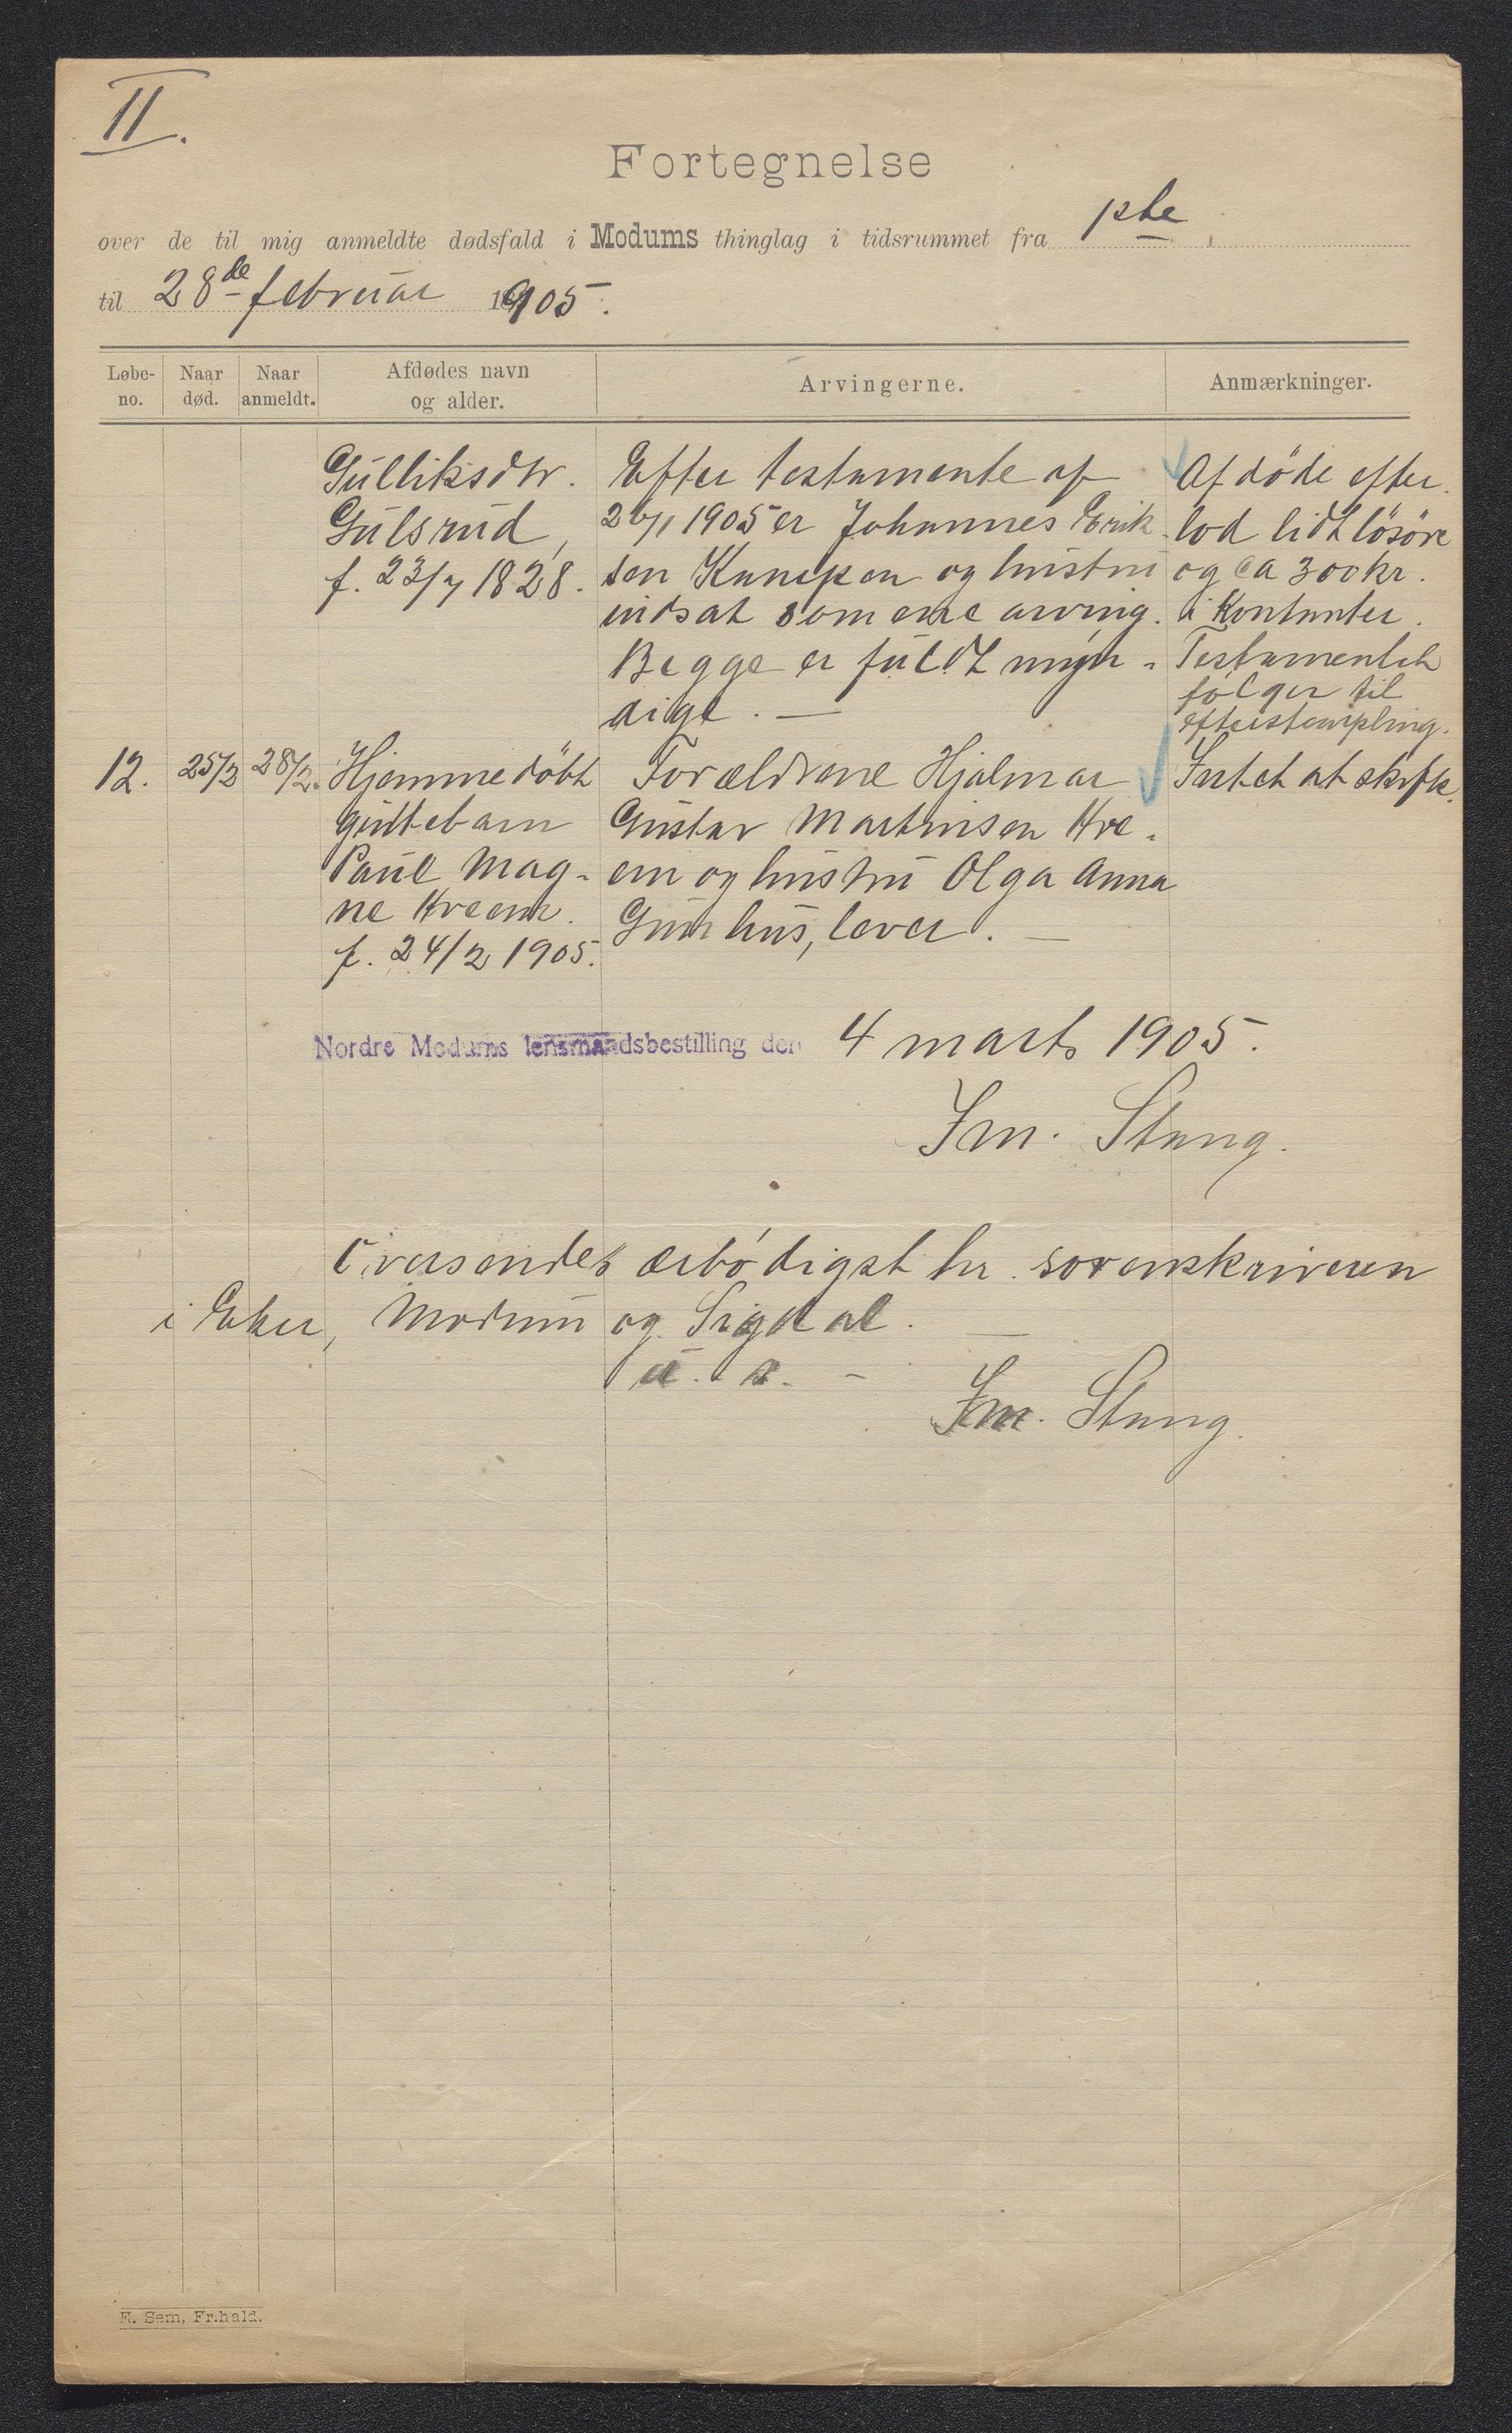 II.
Fortegnelse
over de til mig anmeldte dødsfald i Modums thinglag i tidsrummet fra 1ste
til 28de februar 1905.
Løbe-no. Naar død. Naar anmeldt. Afdødes navn og alder. Arvingerne. Anmærkninger.
Gulliksdtr.
Gulsrud,
f. 23/7 1828.
Efter testamente af
26/1 1905 er Johannes Erik-
sen og hustru
indsat som ene arving.
Begge er fuldt myn-
dige. —
Afdøde efter-
lod lidt løsøre
og ca 300 kr.
i kontanter.
Testamentet
følger til
efterstempling.
12. 25/2 28/2. Hjemmedøbt
guttebarn
Paul Mag-
ne Kreem.
f. 24/2 1905.
Forældrene Hjalmar
Gustav Martinsen Kre-
em og hustru Olga Anna
Gunhus, lever. —
Intet at skifte.
Nordre Modums lensmandsbestilling den 4 marts 1905.
Im. Stang.
Oversendes ærbødigst hr. sorenskriveren
i Eker, Modum og Sigdal. —
u. s. -
Im. Stang.
H. Sem, Fr.hald.